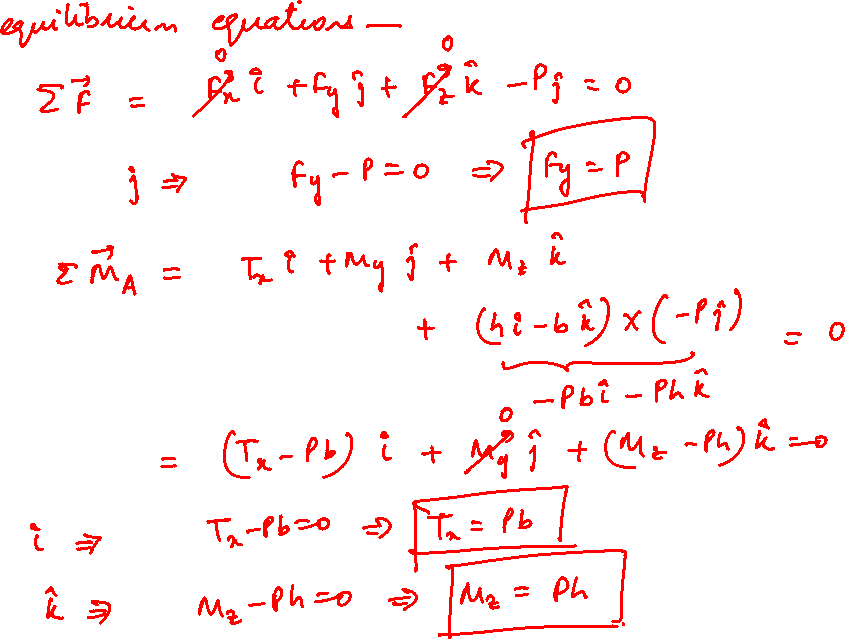 equilibrium equations —
0 0
Σ F⃗ = Fx î + Fy ĵ + Fz k̂ - P ĵ = 0
j ⇒ Fy - P = 0 ⇒ Fy = P
Σ M⃗A = Tx î + My ĵ + Mz k̂
+ (h î - b k̂) × (-P ĵ) = 0
-Pb î - Ph k̂
0
= (Tx - Pb) î + My ĵ + (Mz - Ph) k̂ = 0
i ⇒ Tx - Pb = 0 ⇒ Tx = Pb
k̂ ⇒ Mz - Ph = 0 ⇒ Mz = Ph